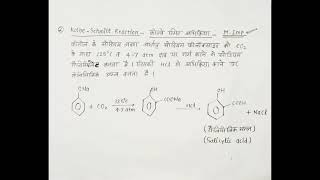 Kolbe-Schmitt Reaction - कोल्बे श्मिट अभिक्रिया - M.Imp
फीनॉल के सोडियम लवण अर्थात् सोडियम फीनॉक्साइड को CO₂
के साथ 125°C व 4-7 atm दाब पर गर्म करने से सोडियम
सैलिसिलेट बनता है। जिसकी HCl से अभिक्रिया कराने पर
सैलिसिलिक अम्ल बनता है।
ONa
+ CO₂
125°C
4-7 atm
OH
COONa
HCl
OH
COOH
+ NaCl
(सैलिसिलिक अम्ल)
(Salicylic acid)